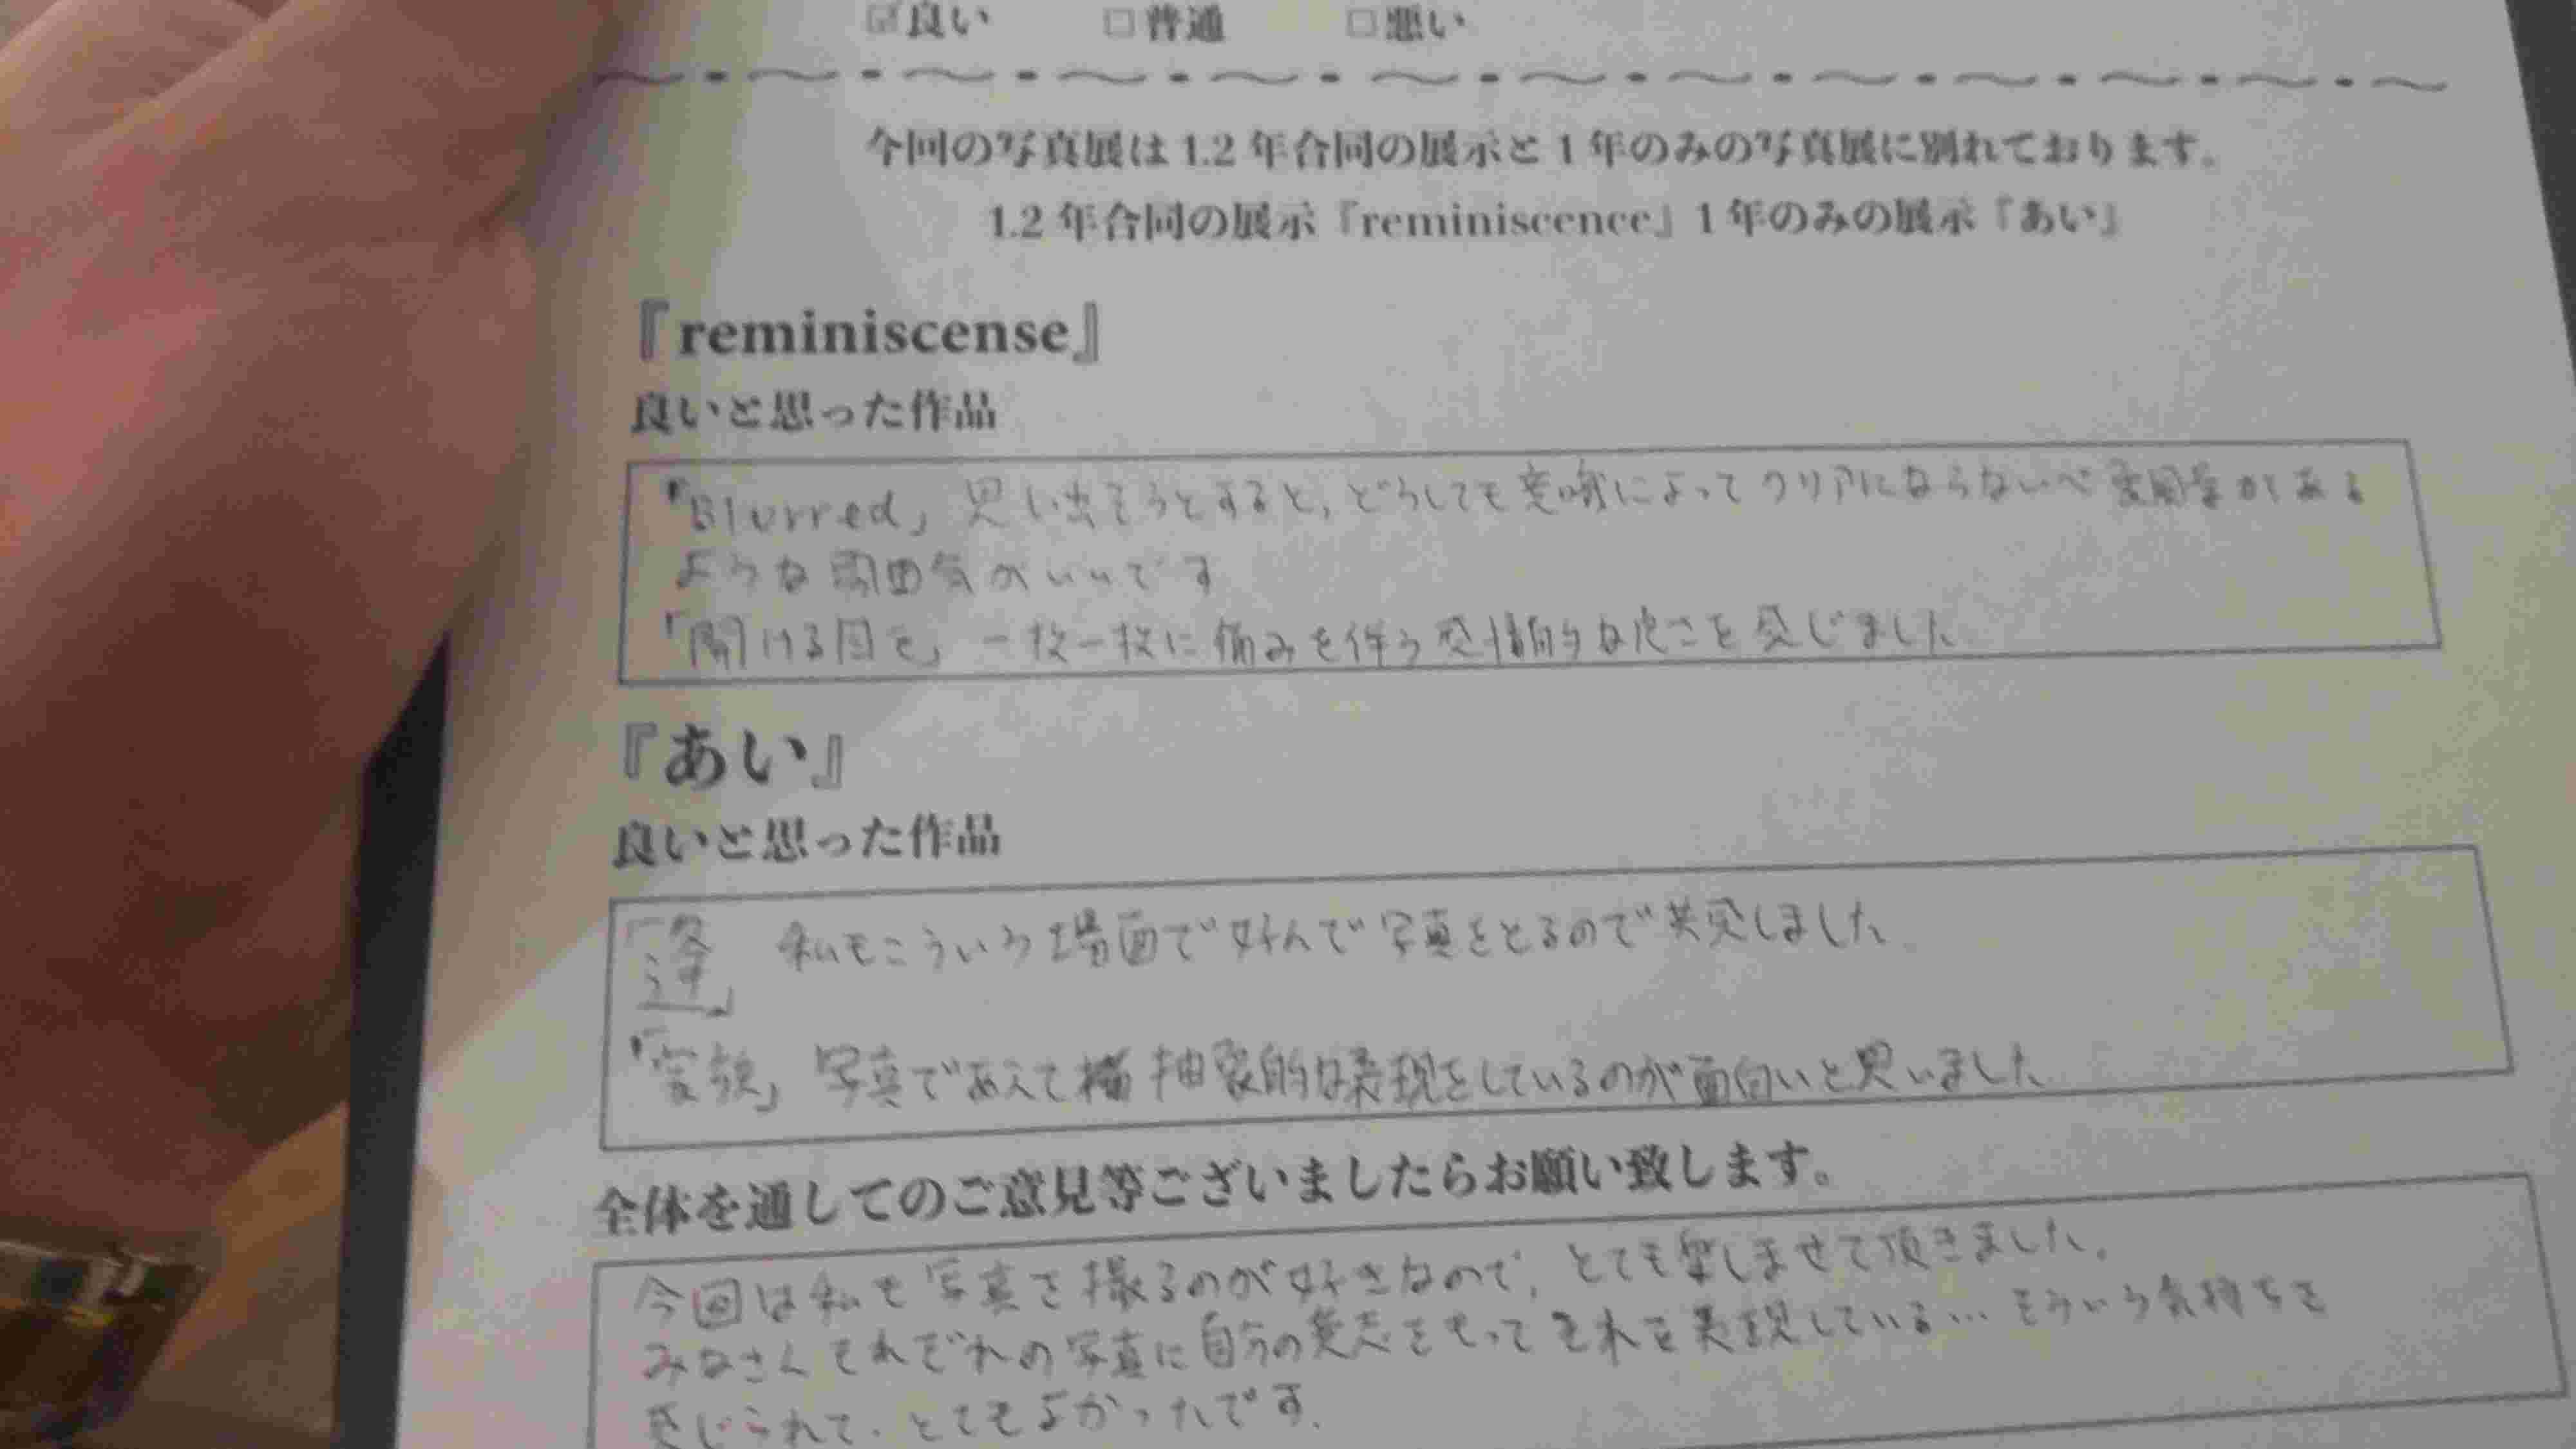 ☑良い □普通 □悪い
今回の写真展は 1.2 年合同の展示と 1 年のみの写真展に別れております。
1.2 年合同の展示『reminiscence』1 年のみの展示『あい』
『reminiscense』
良いと思った作品
「Blurred」思い出そうとすると、どうしても意識によってクリアにならない 雰囲気がある
ような雰囲気がいいです
一枚一枚に痛みを伴う を感じました
『あい』
良いと思った作品
私もこういう場面で好んで写真をとるので共感しました
「家族」写真であえて 抽象的な表現をしているのが面白いと思いました
全体を通してのご意見等ございましたらお願い致します。
今回は私も写真を撮るのが好きなので、とても楽しませて頂きました。
みなさんそれぞれの写真に自分の意志をもってそれを表現している…そういう気持ちを
感じられて、とてもよかったです。